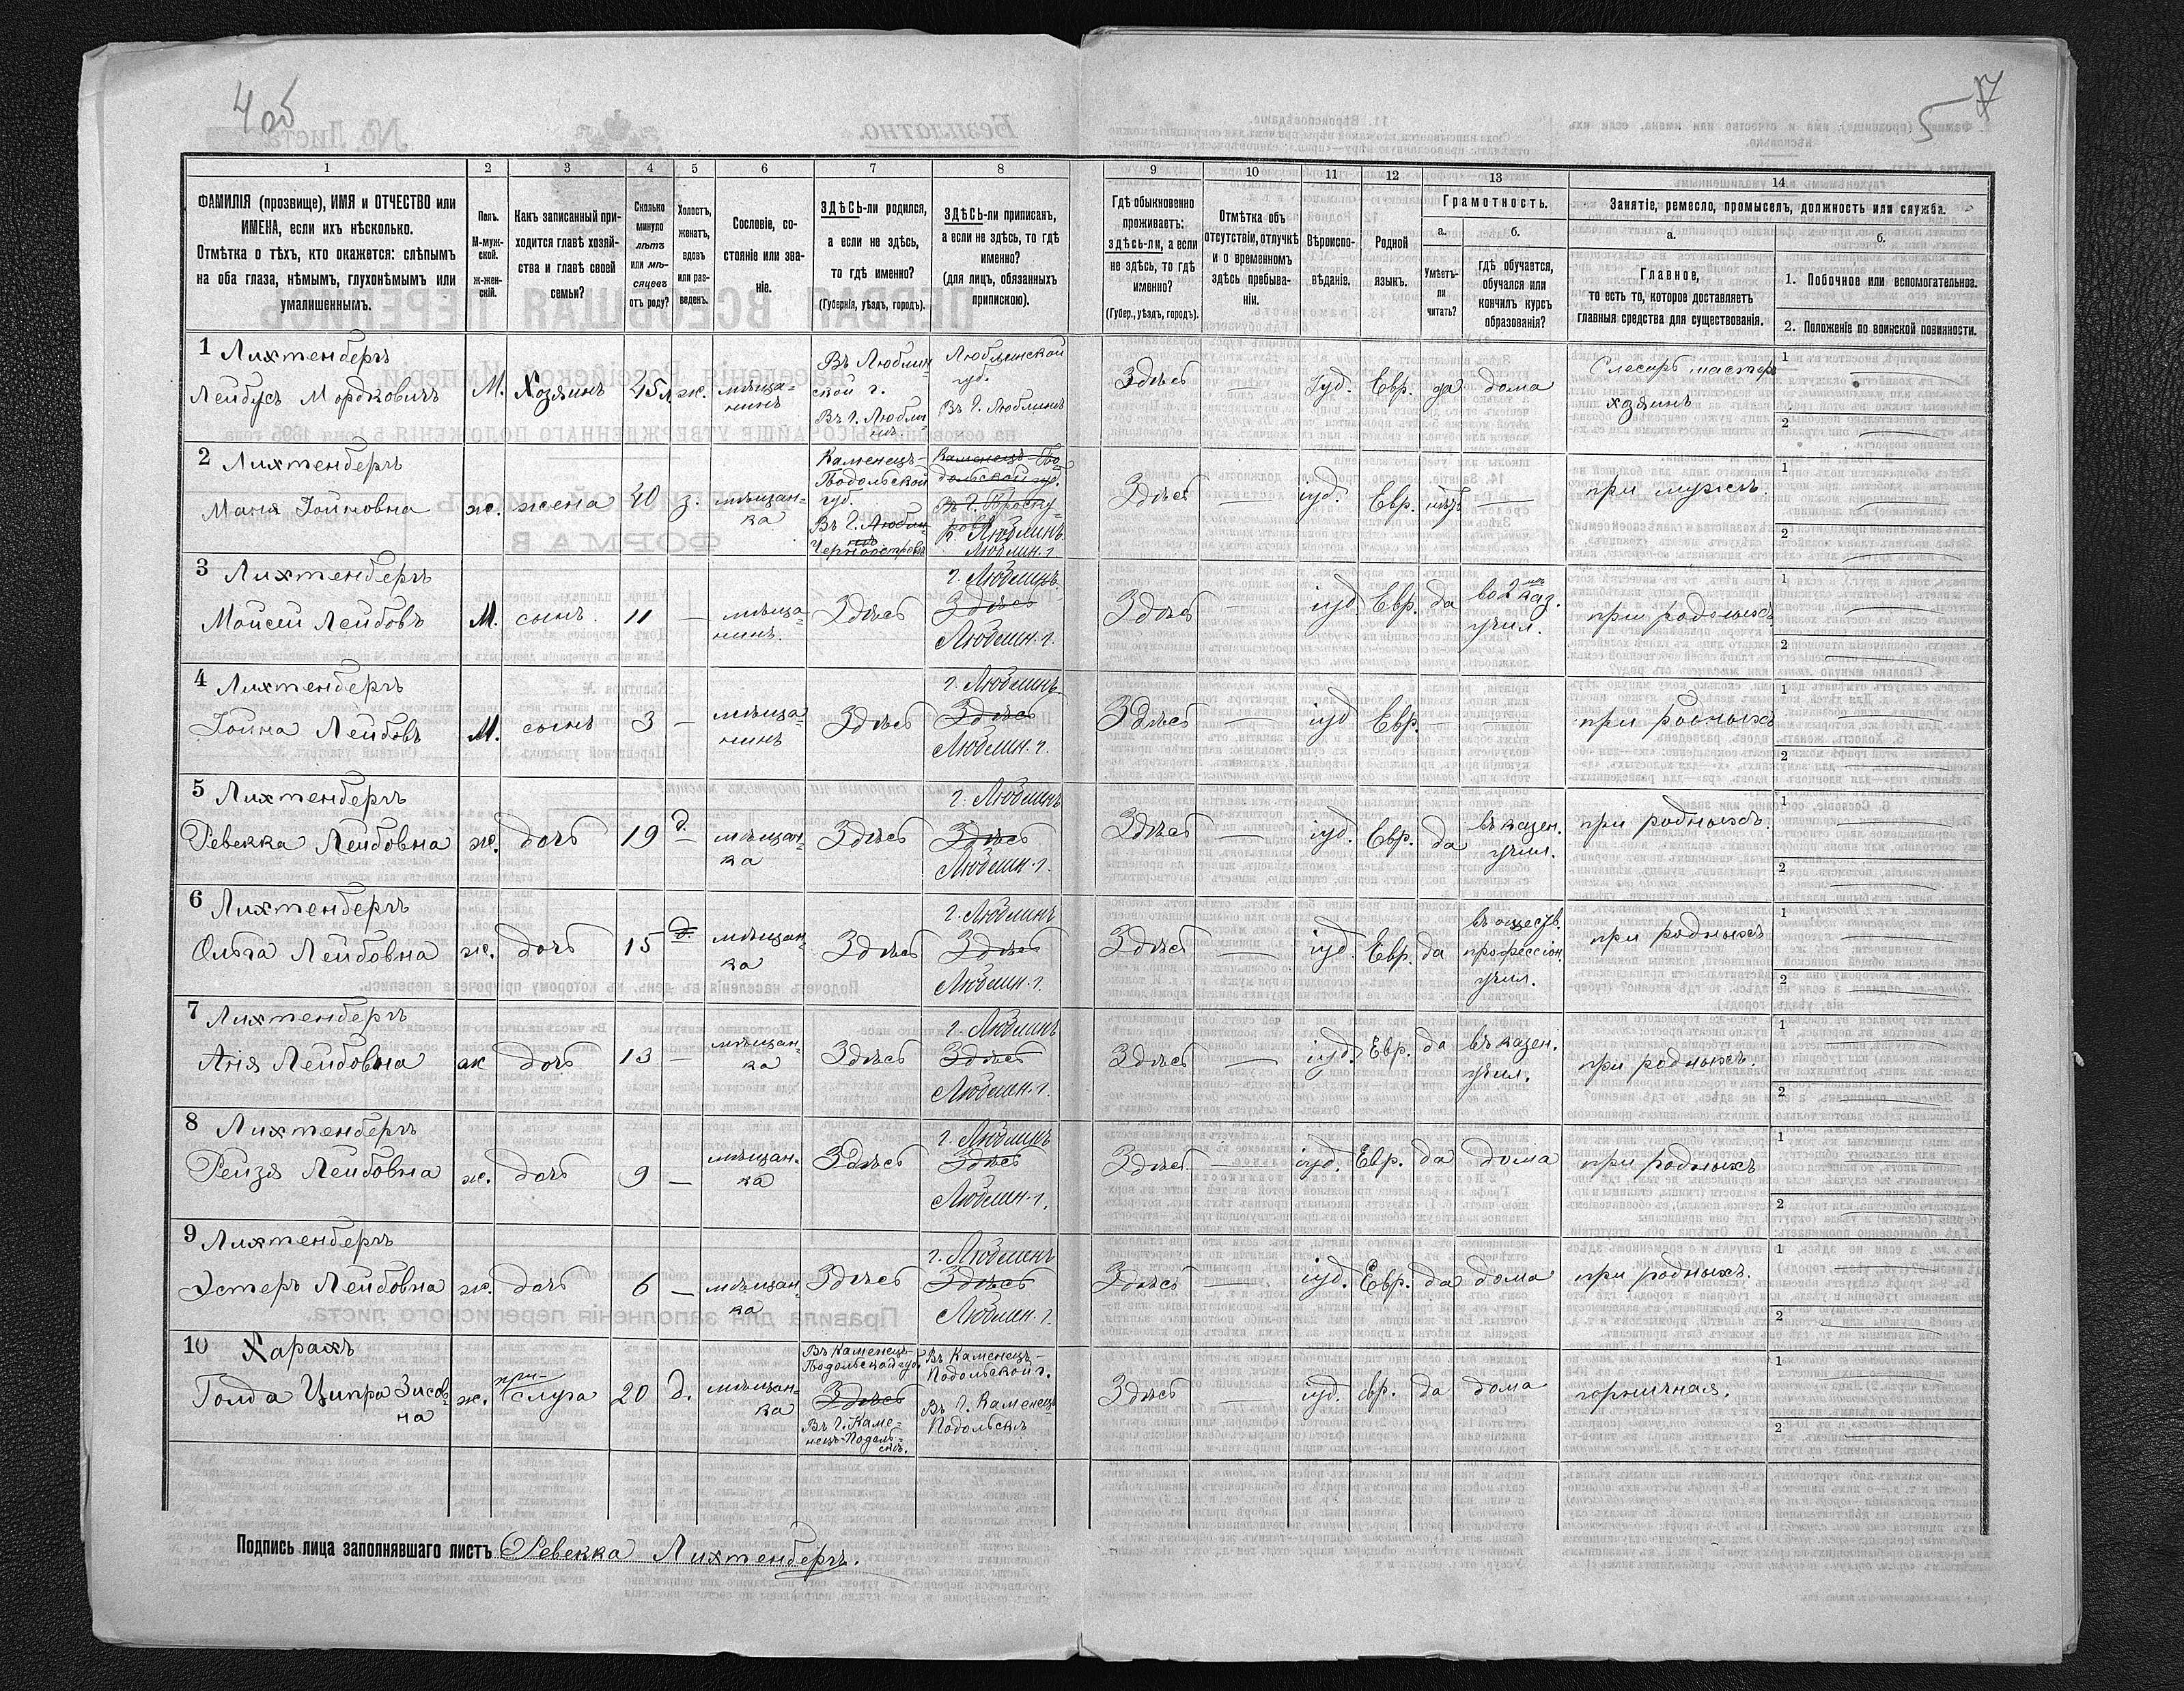 4 об
5
7
1 2 3 4 5 6 7 8 9 10 11 12 13 14
ФАМИЛІЯ (прозвище), ИМЯ и ОТЧЕСТВО или
ИМЕНА, если ихъ нѣсколько.
Отмѣтка о тѣхъ, кто окажется: слѣпымъ
на оба глаза, нѣмымъ, глухонѣмымъ или
умалишеннымъ.
Полъ.
М-муж-
ской.
ж-жен-
скій.
Какъ записанный при-
ходится главѣ хозяй-
ства и главѣ своей
семьи?
Сколько
минуло
лѣтъ
или мѣ-
сяцевъ
отъ роду?
Холостъ,
женатъ,
вдовъ
или раз-
веденъ.
Сословіе, со-
стояніе или зва-
ніе.
ЗДѢСЬ-ли родился,
а если не здѣсь,
то гдѣ именно?
(Губернія, уѣздъ, городъ).
ЗДѢСЬ-ли приписанъ,
а если не здѣсь, то гдѣ
именно?
(для лицъ, обязанныхъ
припискою).
Гдѣ обыкновенно
проживаетъ:
здѣсь-ли, а если
не здѣсь, то гдѣ
именно?
(Губер., уѣздъ, городъ).
Отмѣтка объ
отсутствіи, отлучкѣ
и о временномъ
здѣсь пребыва-
ніи.
Вѣроиспо-
вѣданіе.
Родной
языкъ.
Грамотность.
а.
Умѣетъ-
ли
читать?
б.
гдѣ обучается,
обучался или
кончилъ курсъ
образованія?
Занятіе, ремесло, промыселъ, должность или служба.
а.
Главное,
то есть то, которое доставляетъ
главныя средства для существованія.
б.
1. Побочное или вспомогательное.
2. Положеніе по воинской повинности.
1 Лихтенбергъ
Лейбусь Мордковичъ М. Хозяинъ 45 л ж. мѣща-
нинъ
Въ Люблин-
ской г.
Въ г. Любли-
нѣ
Люблинской
губ.
Въ г. Люблинѣ
Здѣсь — Іуд. Евр. да дома
Слесарь мастеръ
хозяинъ
1
2
2 Лихтенбергъ
Маня Іойновна ж. жена 40 з. мѣщан-
ка
Каменецъ-
Подольской
губ.
Въ г. Любли-
нѣ
Каменецъ-По-
дольской губ.
г. Люблинъ
Люблин. г.
Здѣсь — іуд. Евр. нѣтъ — при мужѣ.
1
2
3 Лихтенбергъ
Моисей Лейбовъ М. сынъ. 11 — мѣща-
нинъ. Здѣсь
г. Люблинъ
Здѣсь
Люблин. г.
Здѣсь — іуд Евр. да во 2 каз.
учил. при родныхъ
1
2
4 Лихтенбергъ
Іойна Лейбовъ М. сынъ 3 — мѣща-
нинъ Здѣсь
г. Люблинъ
Здѣсь
Люблин. г.
Здѣсь — іуд Евр. — — при родныхъ
1
2
5 Лихтенбергъ
Ревекка Лейбовна ж. дочь 19 д. мѣщан-
ка Здѣсь
г. Люблинъ
Здѣсь
Люблин. г.
Здѣсь — іуд. Евр. да въ казен.
учил. при родныхъ.
1
2
6 Лихтенбергъ
Ольга Лейбовна ж. дочь 15 д. мѣщан-
ка Здѣсь
г. Люблинъ
Здѣсь
Люблин. г.
Здѣсь — іуд. Евр. да
профессіон.
учил. при родныхъ
1
2
7 Лихтенбергъ
Аня Лейбовна ж дочь 13 — мѣщан-
ка Здѣсь
г. Люблинъ
Здѣсь
Люблин. г.
Здѣсь — іуд. Евр. да въ казен.
учил. при родныхъ.
1
2
8 Лихтенбергъ
Рейзя Лейбовна ж. дочь 9 — мѣщан-
ка Здѣсь
г. Люблинъ
Здѣсь
Люблин. г.
Здѣсь — іуд. Евр. да дома при родныхъ
1
2
9 Лихтенбергъ
Эстеръ Лейбовна ж. дочь 6 — мѣщан-
ка Здѣсь
г. Люблинъ
Здѣсь
Люблин. г.
Здѣсь — іуд. Евр. да дома при родныхъ.
1
2
10 Харахъ
Голда Ципра Зисов-
на ж. при-
слуга 20 д. мѣщан-
ка
Въ Каменецъ-
Подольской губ.
Здѣсь
Въ г. Каме-
нецъ-Подоль-
скѣ.
Въ Каменецъ-
Подольской г.
Въ г. Каменецъ
Подольскъ
Здѣсь — іуд. евр. да дома горничная.
1
2
Подпись лица заполнявшаго листъ Ревекка Лихтенбергъ.